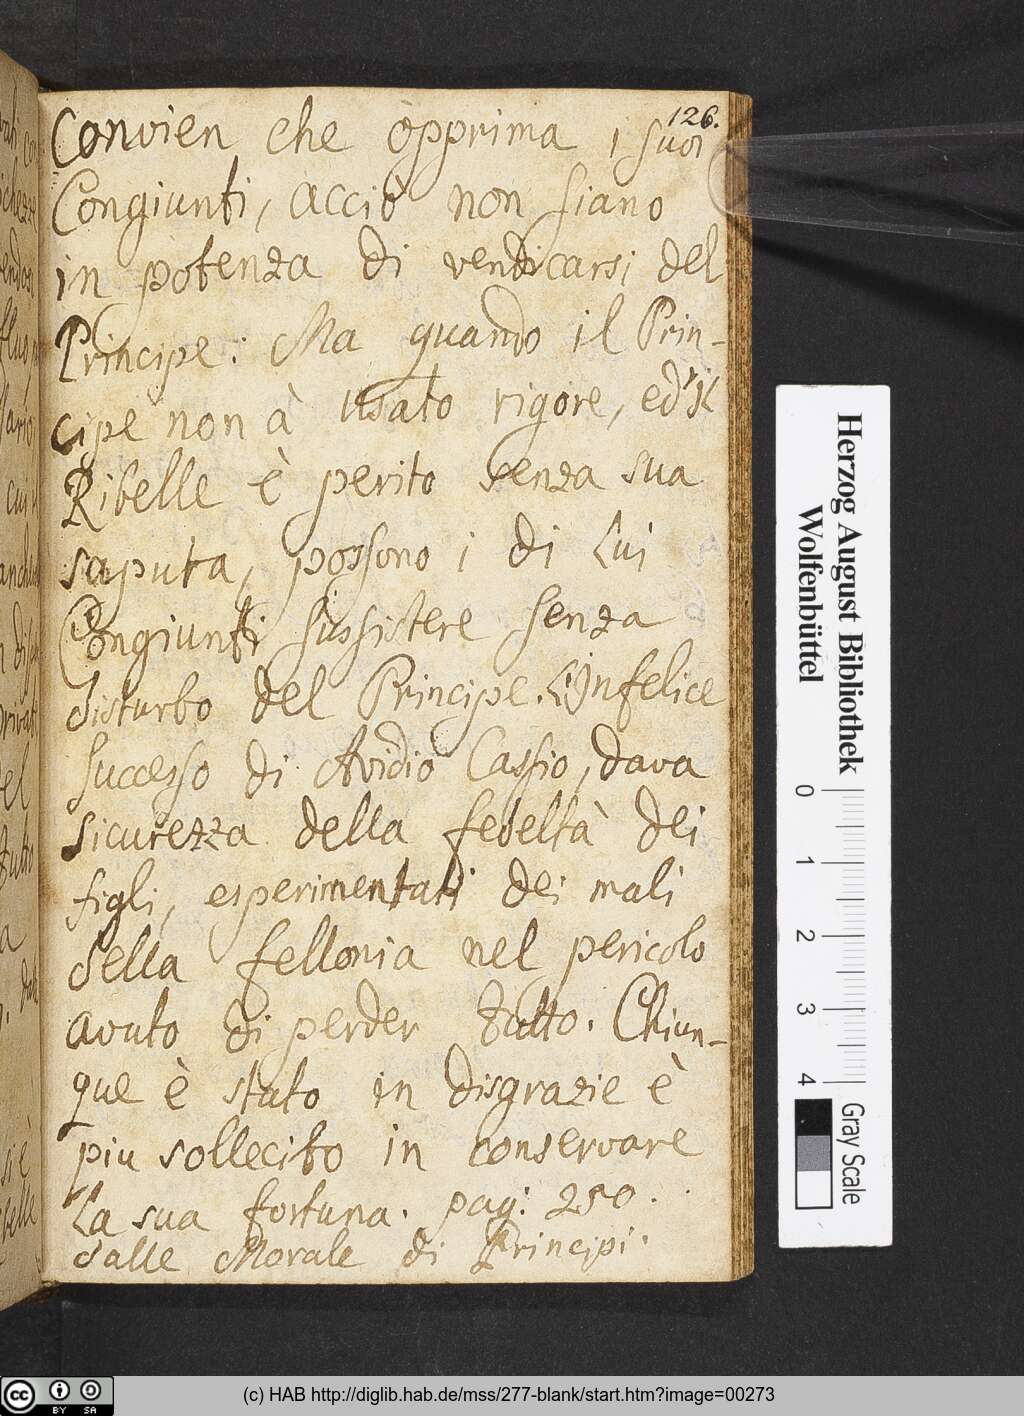 126.
Convien che opprima i suoi
Congiunti, acciò non siano
in potenza di vendicarsi del
Principe: Ma quando il Prin-
cipe non à usato rigore, ed il
Ribelle è perito senza sua
saputa, possono i di Lui
Congiunti sussistere senza
disturbo del Principe. L'Infelice
successo di Avidio Cassio, dava
sicurezza della fedeltà dei
figli, esperimentati dei mali
della fellonia nel pericolo
avuto di perder tutto. Chiun-
que è stato in disgrazie è
piu sollecito in conservare
La sua fortuna. pag: 250.
dalle Morale di Principi.
Herzog August Bibliothek
Wolfenbüttel
0 1 2 3 4
Gray Scale
cc BY SA
(c) HAB http://diglib.hab.de/mss/277-blank/start.htm?image=00273